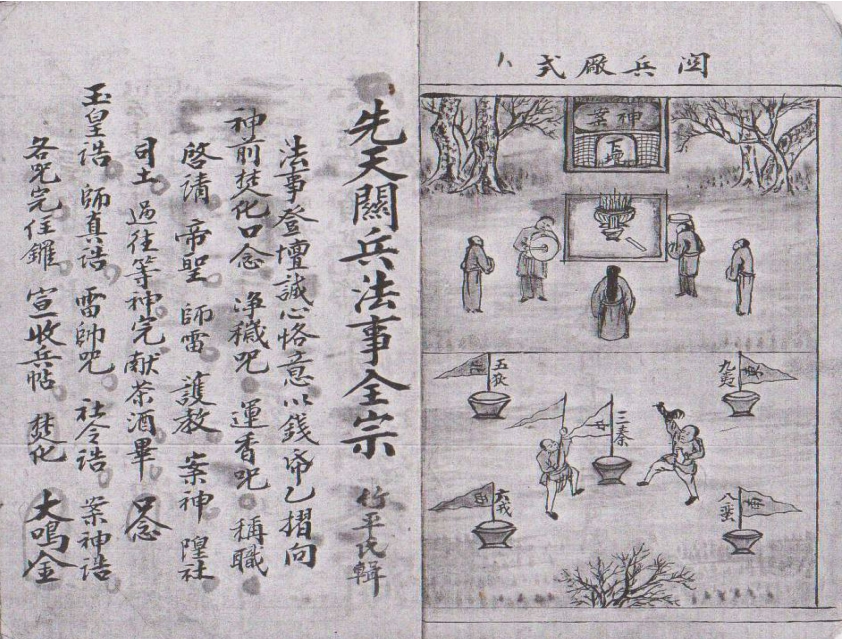 関兵廠式
神案
下壇
五狄
九夷
三秦
六戎
八蛮
先天關兵法事全宗 竹平氏輯
法事登壇誠心恪意以錢帛乙摺向
神前焚化口念 淨穢咒 運香咒 稱職
啓請 帝聖 師雷 護教 案神 隍社
司土 過往等神完献茶酒畢 口念
玉皇誥 師真誥 雷帥咒 社令誥 案神誥
各咒完住鑼 宣收兵帖 焚化 大鳴金